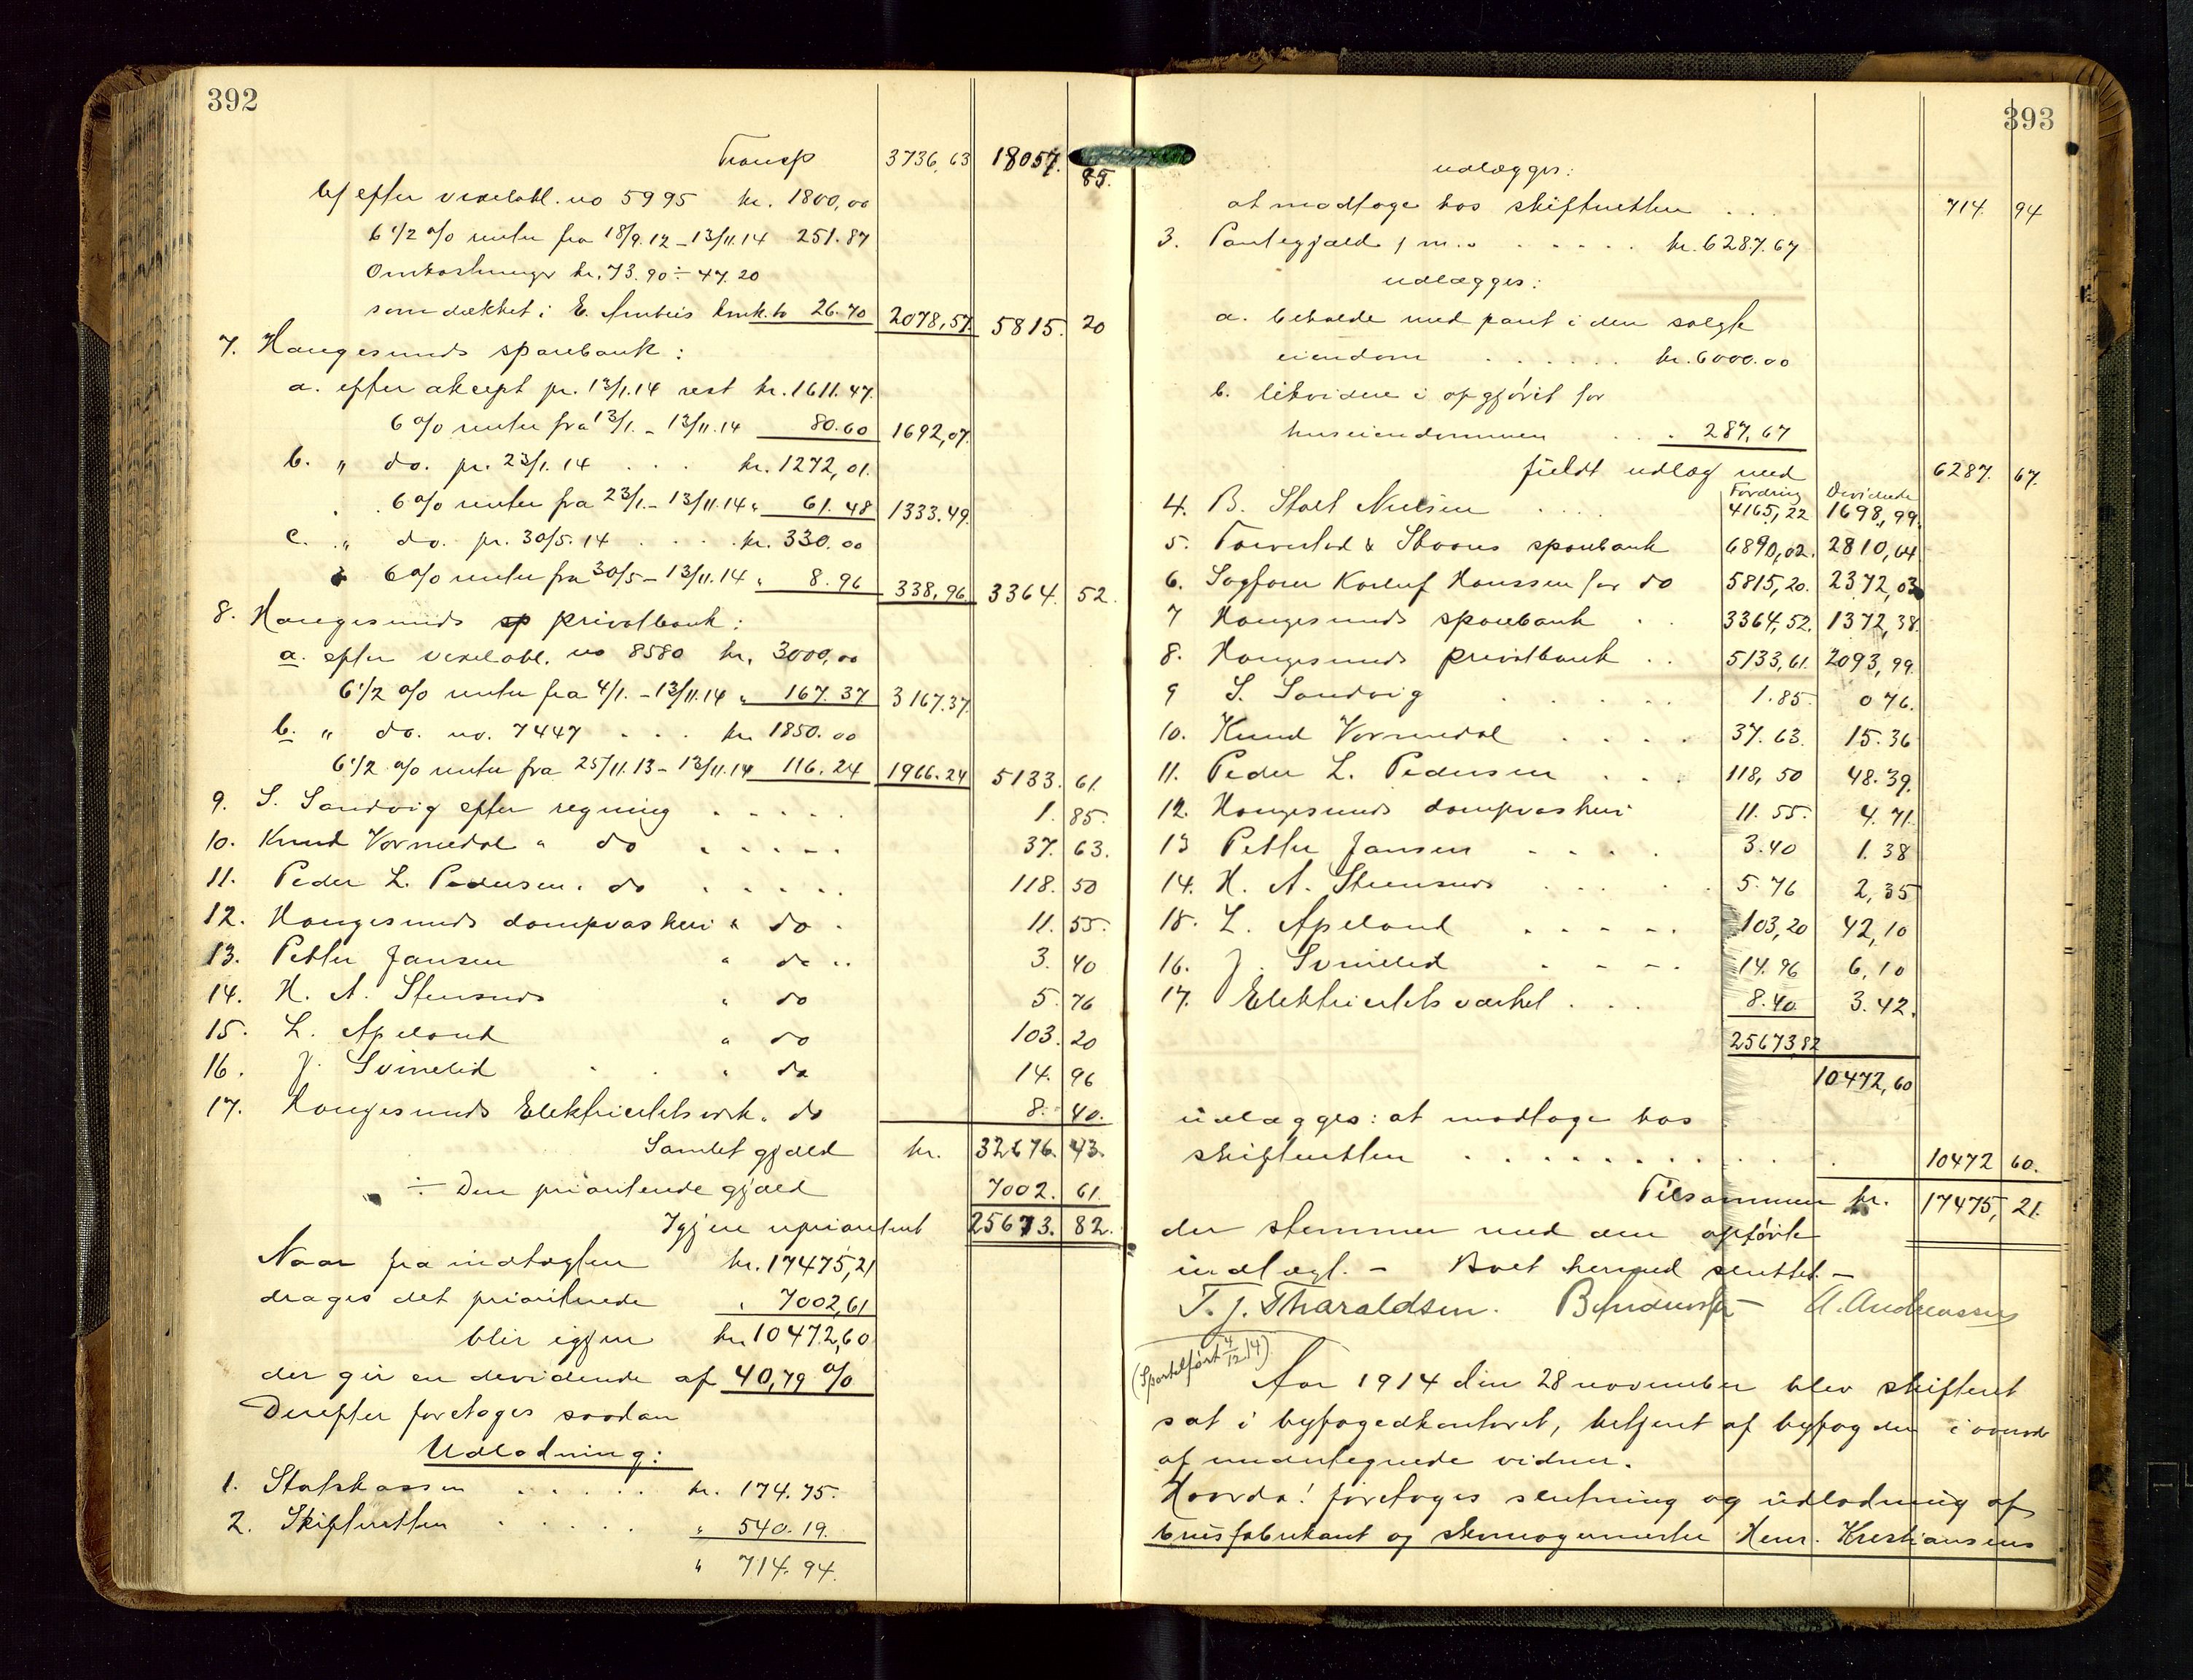 392
Transp 3736,63 18057. 85.
b/ efter vexelobl. no 5995 kr. 1800,00
6 1/2 % renter fra 18/9.12 - 13/11.14 251.87
Omkostninger kr. 73.90 ÷ 47.20
som dækket i E. konk.bo 26.70 2078,57. 5815. 20
7. Haugesunds sparebank:
a. efter akcept pr. 13/1.14 rest kr. 1611.47.
6 % renter fra 13/1. - 13/11.14 80.60 1692,07.
b. " do. pr. 23/1.14 . . . kr. 1272,01.
6 % renter fra 23/1. - 13/11.14 " 61.48 1333.49.
c. " do. pr. 30/5.14 . . . . kr. 330.00
6 % renter fra 30/5 - 13/11.14 " 8.96 338,96. 3364. 52.
8. Haugesunds sp privatbank:
a. efter vexelobl. no 8580 kr. 3000,00
6 1/2 % renter fra 4/1. - 13/11.14 " 167.37 3167.37
b. " do. no. 7447 . . . kr. 1850.00
6 1/2 % renter fra 25/11.13 - 13/11.14 116.24 1966.24 5133. 61.
9. S. Sandvig efter regning . . . . . 1. 85.
10. Knud Vormedal " do . . . . 37. 63.
11. Peder L. Pedersen " do . . . . . 118. 50
12. Haugesunds dampvaskeri " do . 11. 55.
13. Petter Jansen " do .. 3. 40
14. H. A. Stensnes " do 5. 76
15. L. Apeland " do 103. 20
16. J. Svinelid . . " do 14. 96
17. Haugesunds Elektricitetsverk " do 8. 40.
Samlet gjæld kr. 32676. 43.
÷ Den prioriterede gjæld 7002. 61.
Igjen uprioritert 25673. 82.
Naar fra indtægten kr. 17475,21
drages det prioriterede " 7002,61
blir igjen kr. 10472,60
der gir en devidende af 40,79 %
Derefter foretages saadan
Udlodning:
1. Statskassen . . . . . kr. 174.75.
2. Skifteretten . . . . . " 540.19.
" 714.94.
393
udlægges:
at modtage hos skifteretten . . . 714. 94
3. Pantegjæld m.v. . . . . . kr. 6287.67
udlægges:
a. beholde med pant i den solgte
eiendom . . . . . . kr. 6000.00
b. likvidere i opgjøret for
huseiendommen . . . 287,67
fuldt udlæg med 6287. 67.
Fordring Devidende
4. B. Stolt Nielsen . . . . 4165,22 1698,99.
5. Torvestad & Skaares sparebank 6890,02. 2810,64
6. Sagfører Karluf Hanssen for do 5815,20. 2372,03
7 Haugesunds sparebank . . 3364,52. 1372,38.
8. Haugesunds privatbank . . 5133,61. 2093,99.
9 S. Sandvig . . . . . 1.85. 0 76.
10. Knud Vormedal . . . . 37.63. 15.36
11. Peder L. Pedersen . . . 118,50 48.39.
12. Haugesunds dampvaskeri 11.55. 4.71.
13 Petter Jansen . . . . 3.40 1.38
14. H. A. Stensnes . . . . 5.76 2,35
15. L. Apeland . . . . . 103,20 42,10
16. J. Svinelid . . . . 14.96 6,10
17. Elektricitetsværket . . . 8.40. 3.42.
25673 82
10472,60
udlægges: at modtage hos
skifteretten . . . . . . . . . . 10472 60.
Tilsammen kr. 17475, 21.
der stemmer med den opførte
indtægt. - Boet hermed sluttet. -
T. J. Tharaldsen. A. Andreassen
(Sportelført 4/12 14)
Aar 1914 den 28 november blev skifteret
sat i byfogedkontoret, betjent af byfogden i overvær
af undertegnede vidner.
Hvorda! foretoges slutning og udlodning af
brusfabrikant og stenhuggermester Henr. Kristiansens